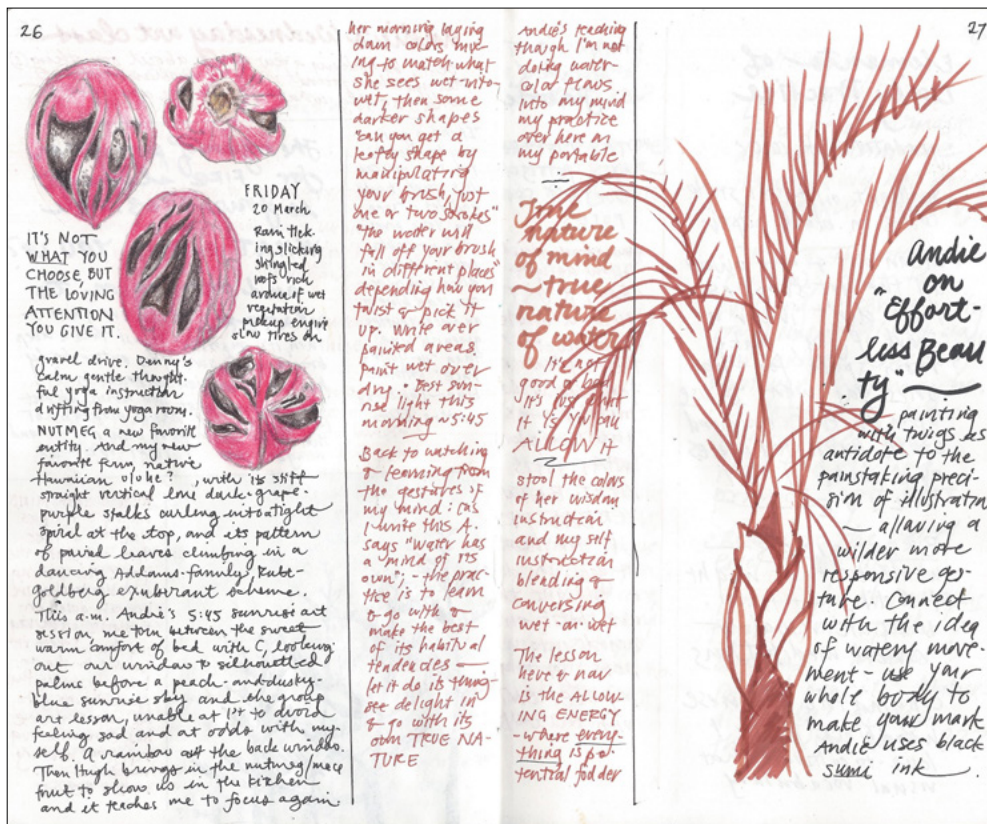 26
FRIDAY
20 March
Rain tick-
ing slicking
shingled
roofs rich
aroma of wet
vegetation
pickup engine
slow tires on
IT'S NOT
WHAT YOU
CHOOSE, BUT
THE LOVING
ATTENTION
YOU GIVE IT.
gravel drive. Denny's
calm gentle thought-
ful yoga instruction
drifting from yoga room.
NUTMEG a new favorite
entity. And my new
favorite fern, native
Hawaiian uluhe?, with its stiff
straight vertical line dark-grape-
purple stalks curling into a tight
spiral at the top, and its pattern
of paired leaves climbing in a
dancing Addams-family, Rube-
goldberg exuberant scheme.
This a.m. Andie's 5:45 sunrise art
session, me torn between the sweet
warm comfort of bed with C, looking
out our window to silhouetted
palms before a peach-and-dusky-
blue sunrise sky and the group
art lesson, unable at 1st to avoid
feeling sad and at odds with my-
self. A rainbow out the back window.
Then Hugh brings in the nutmeg/mace
fruit to show us in the kitchen
and it teaches me to focus again
her morning laying
down colors mix-
ing to match what
she sees wet-into-
wet, then some
darker shapes
"can you get a
leafy shape by
manipulating
your brush, just
one or two strokes"
"the water will
fall off your brush
in different places"
depending how you
twist & pick it
up. Write over
painted areas.
paint wet over
dry. • Best sun-
rise light this
morning ~5:45
Back to watching
& learning from
the gestures of
my mind: (as
I write this A.
says "Water has
a mind of its
own"; - the prac-
tice is to learn
& go with &
make the best
of its habitual
tendencies —
let it do its thing-
see delight in
& go with its
own TRUE NA-
TURE
Andie's teaching
though I'm not
doing water-
color flows
into my mind
my practice
over here on
my portable
True
nature
of mind
~ true
nature
of water
It's not
good or bad
It's just what
it is
ALLOW IT
stool the colors
of her wisdom
instruction
and my self
instruction
blending &
conversing
wet-on-wet
The lesson
here & now
is the ALLOW-
ING ENERGY
- where every-
thing is po-
tential fodder
27
Andie
on
"Effort-
less Beau
ty"
painting
with twigs as
antidote to the
painstaking preci-
sion of illustration
— allowing a
wilder more
responsive ges-
ture. Connect
with the idea
of watery move-
ment - use your
whole body to
make your mark
Andie uses black
sumi ink.